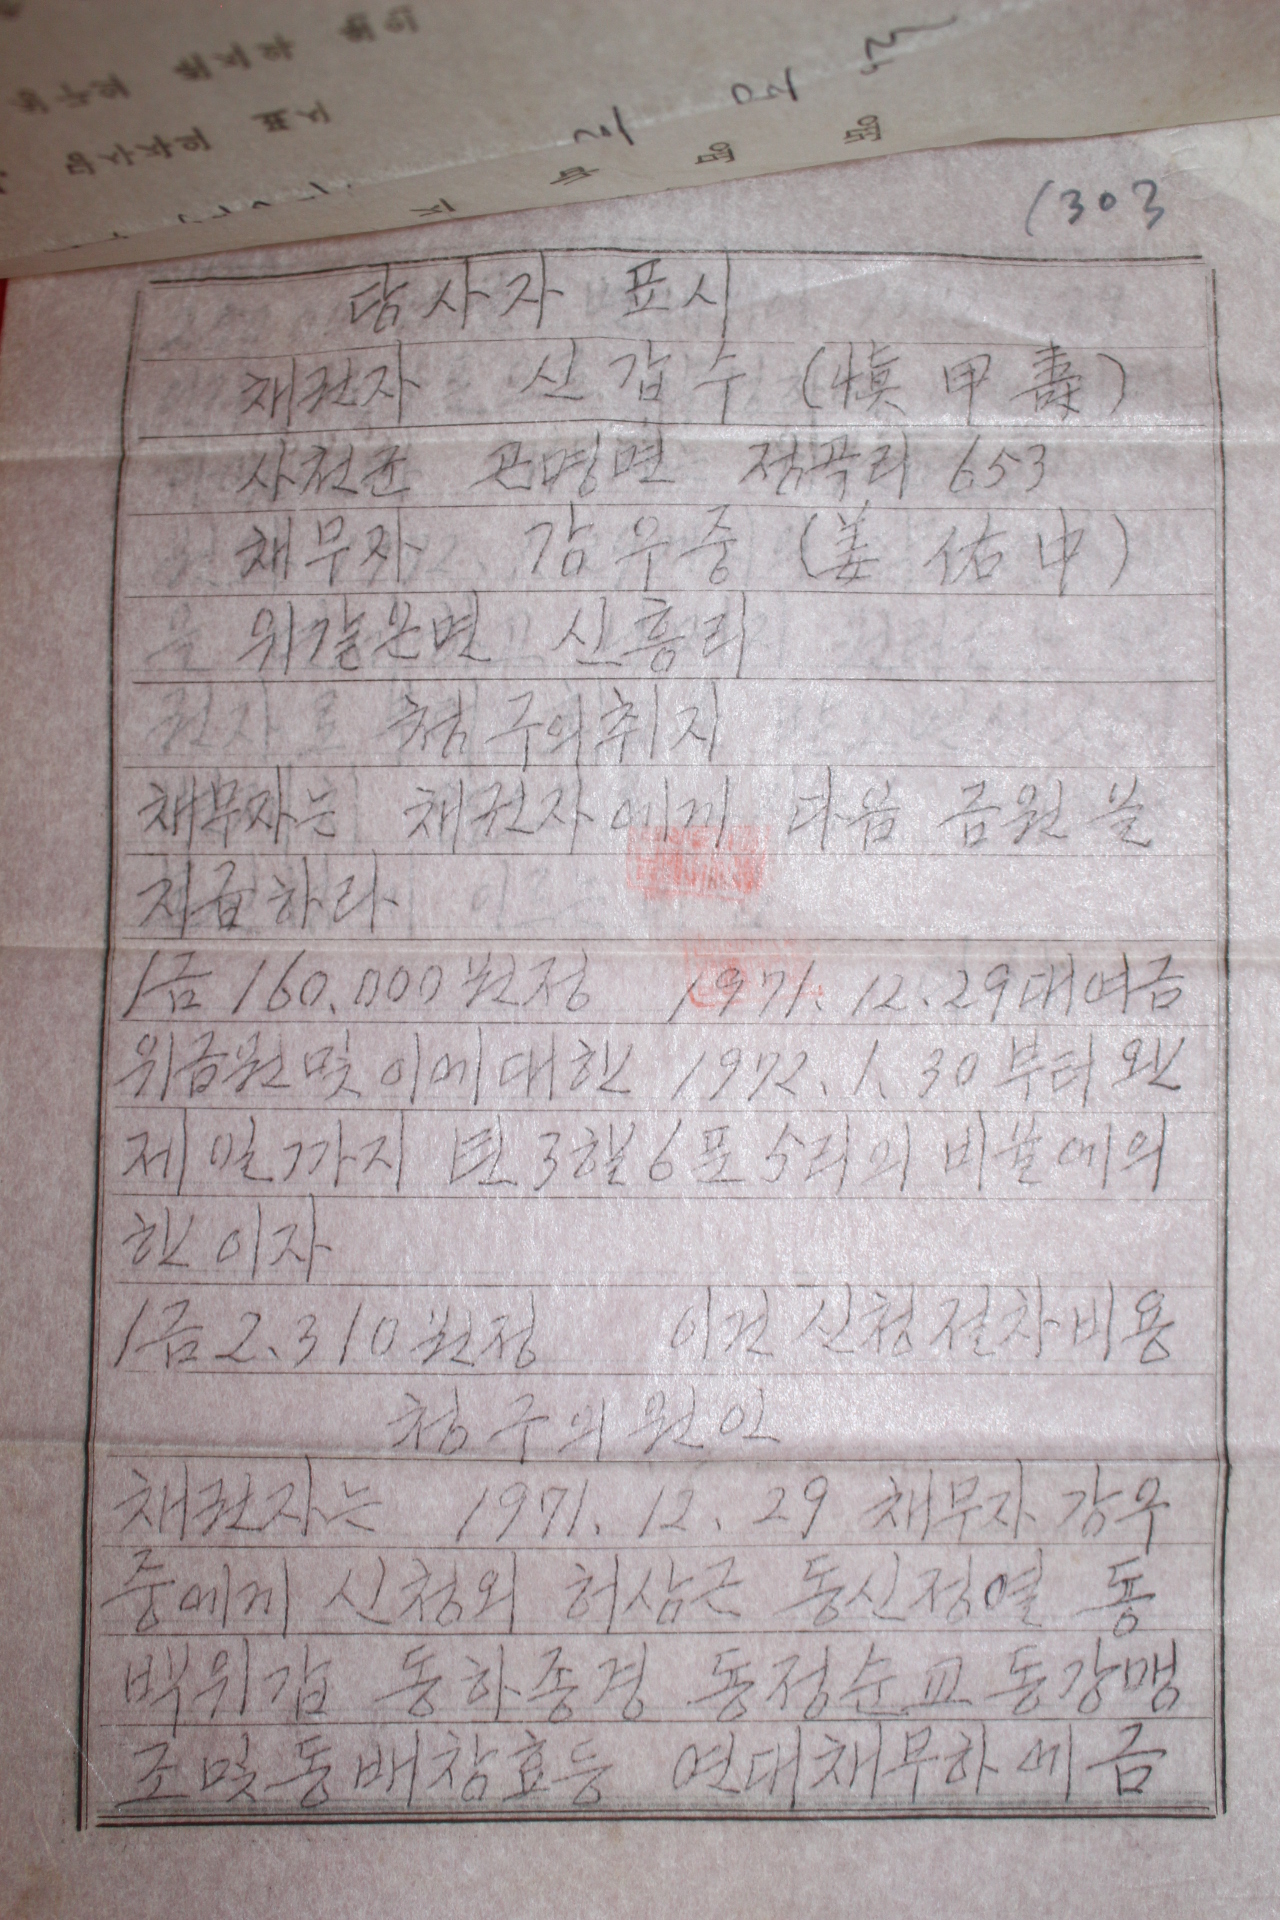 1303
당사자 표시
채권자 신갑수 (愼甲壽)
사천군 곤명면 정곡리 653
채무자 강우중 (姜佑中)
위같은면 신흥리
청구의취지
채무자는 채권자에게 다음 금원을
지급하라
1금 160,000원정 1971. 12. 29대여금
위금원및 이에대한 1972. 1. 30부터 완
제일까지 년3할6푼5리의 비율에의
한 이자
1금2,310원정 이건 신청절차비용
청구의원인
채권자는 1971. 12. 29 채무자 강우
중에게 신청외 허삼근 동신정열 동
백위갑 동하종경 동정순교 동강맹
조및동배창효등 연대채무하에금